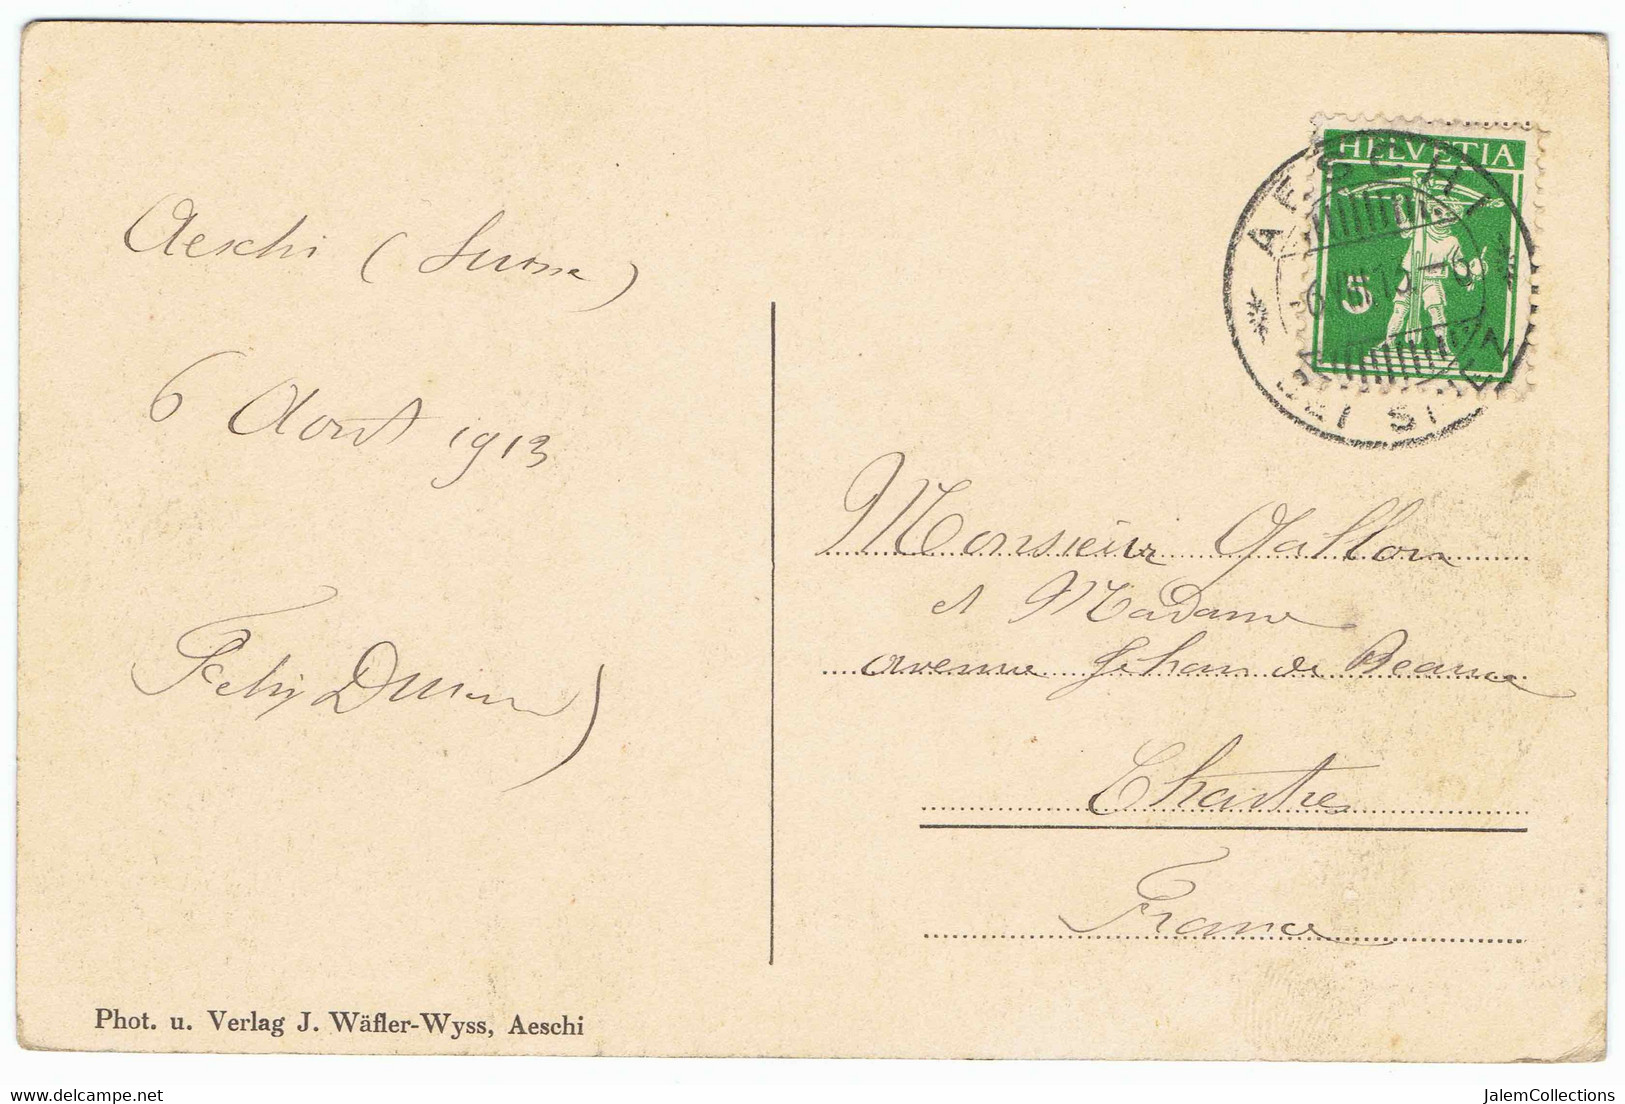 HELVETIA
5
AESCHI
6 VIII 13. - 6
BEI SPIEZ
Aeschi (Suisse)
6 Aout 1913
Felix
Monsieur Gallon
et Madame
avenue Jehan de Beauce
Chartres
France
Phot. u. Verlag J. Wäfler-Wyss, Aeschi
JalemCollections